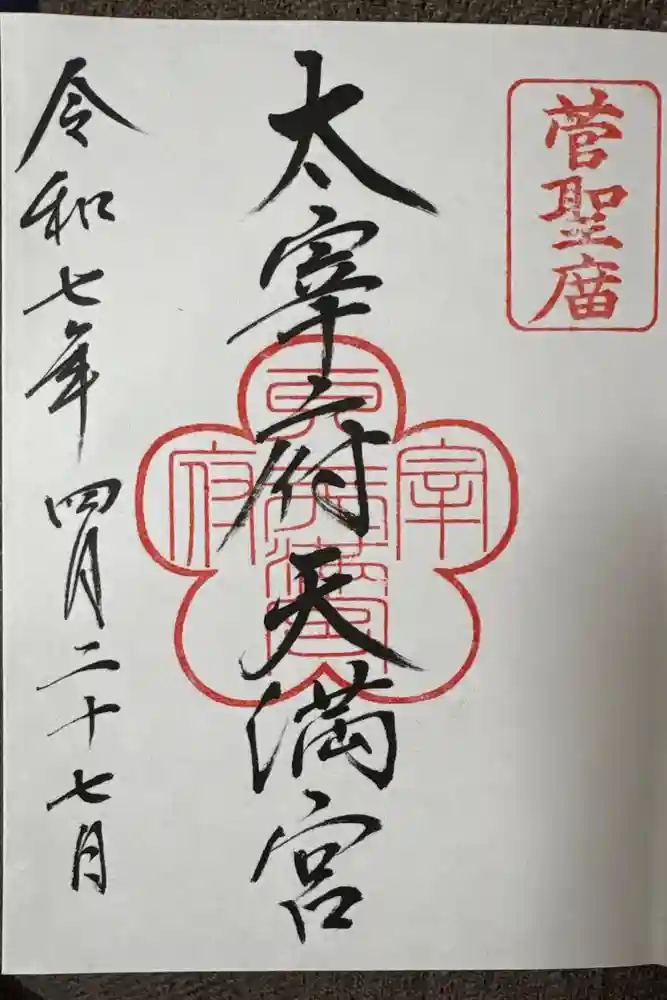 菅聖庿
太宰府天満宮
太宰府天満宮
令和七年 四月二十七日